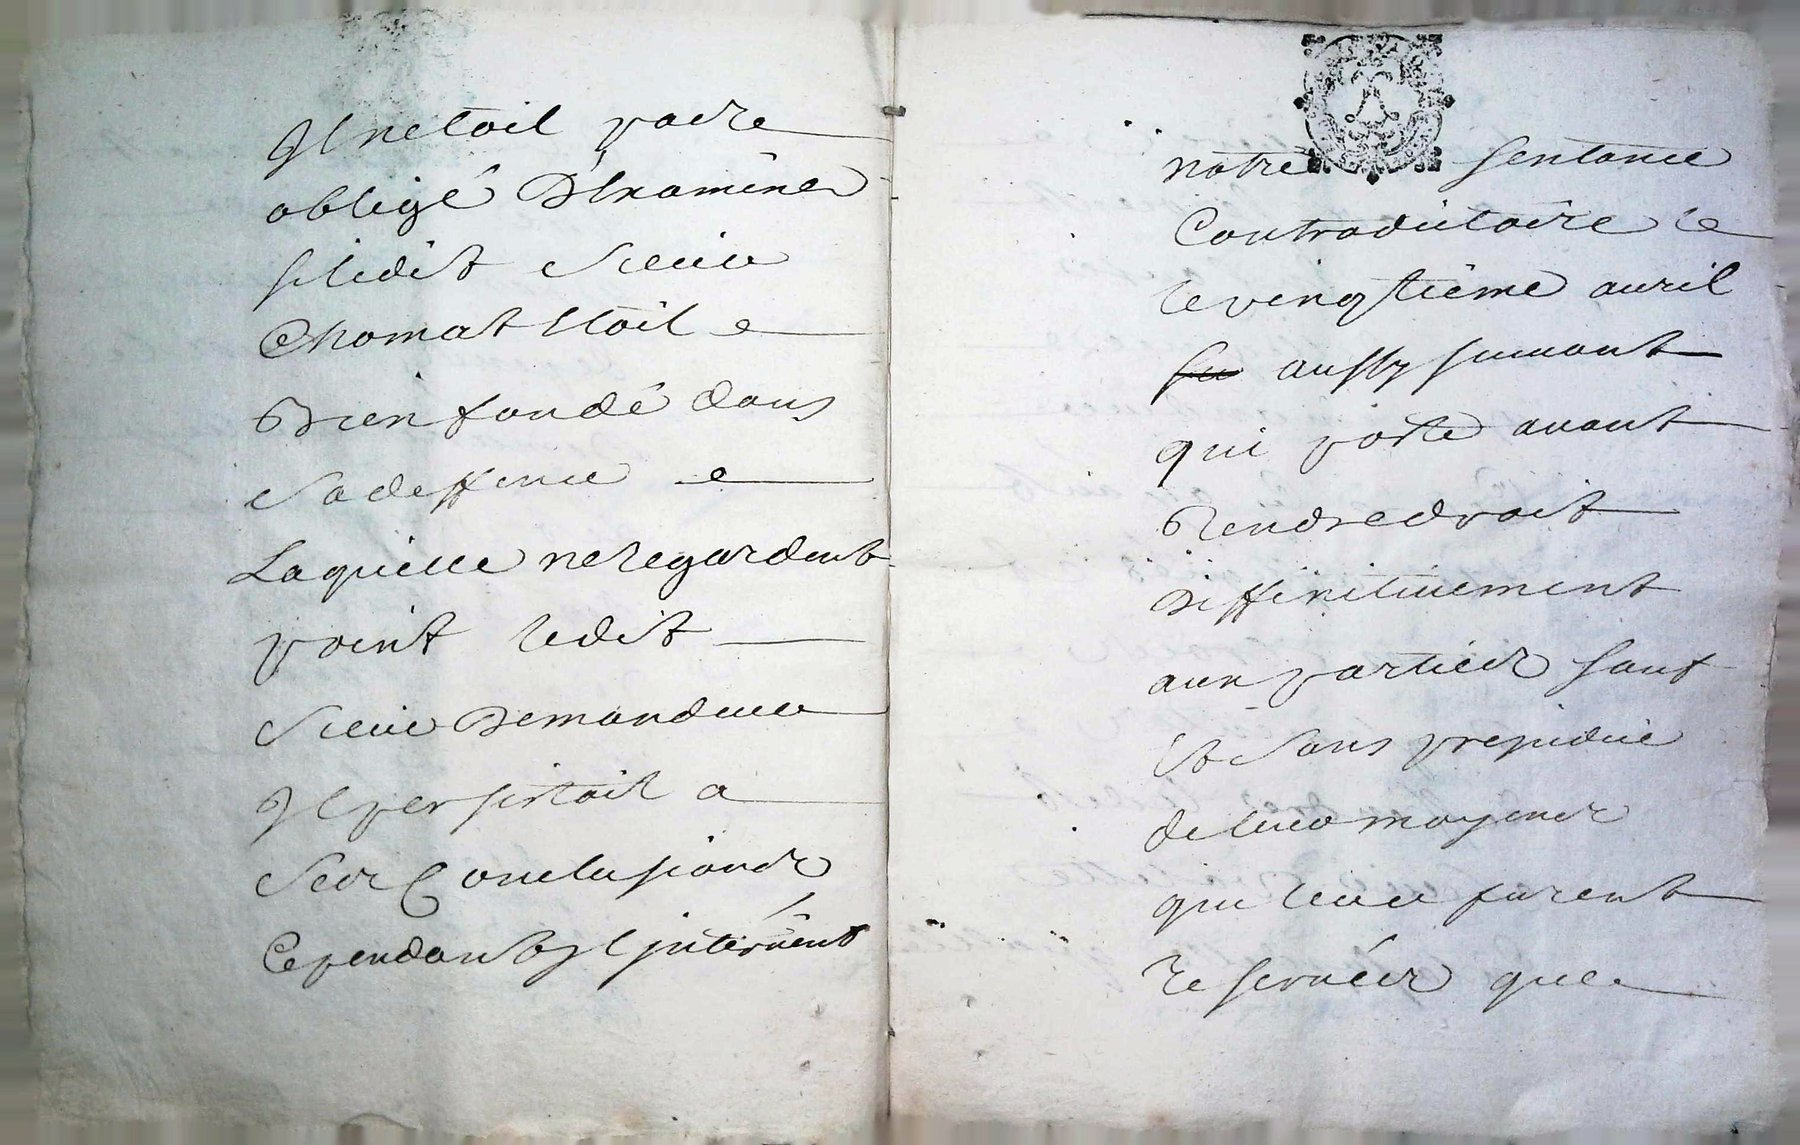 Il netoit pas
obligé d'Examiner
si ledit sieur
Chomat Etoit
Bien fondé dans
sa deffence
Laquelle ne regardent
point ledit
sieur Demandeur
Il persistoit a
ses Conclusions
Cependant Il jntervient
notre sentance
Contradictoire le
le vingtième auril
aussy suiuant
qui porte auant
Rendre droit
diffinitiuement
aux parties sauf
Et sans prejudice
de leurs moyens
qui leur furent
reseruées que